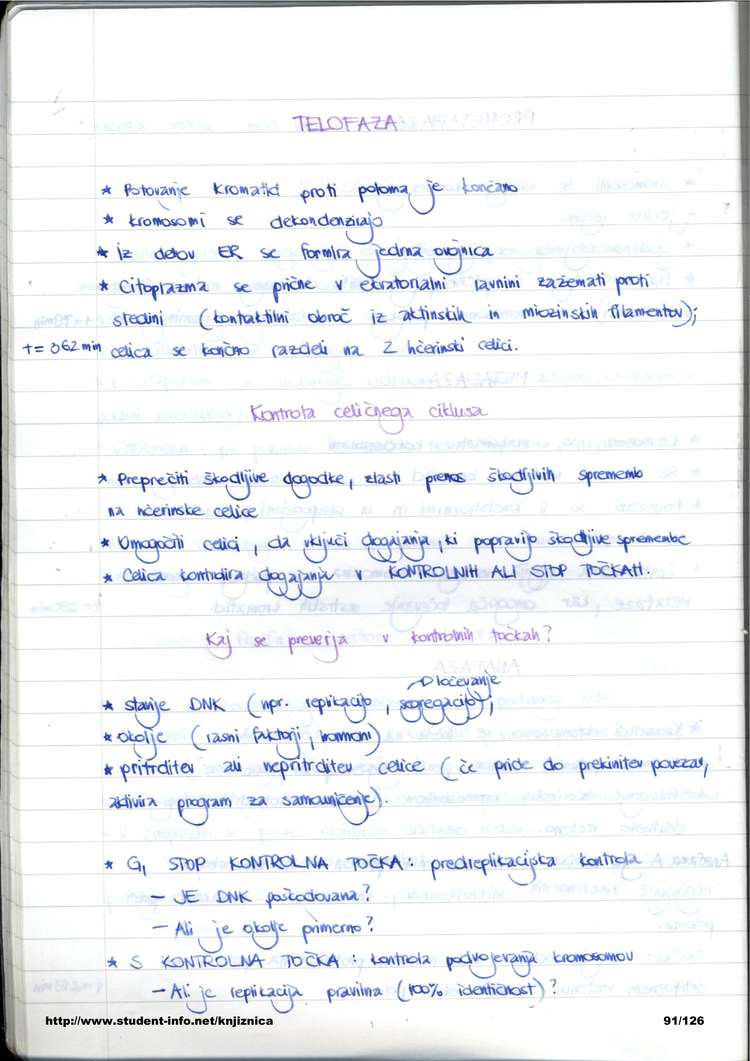 TELOFAZA
* Potovanje kromatid proti poloma je končano
* kromosomi se dekondenzirajo
* iz delov ER se formira jedrna ovojnica
* Citoplazma se prične v ekvatorialni ravnini zažemati proti
sredini (kontraktilni obroč iz aktinskih in miozinskih filamentov);
t = 362 min celica se končno razdeli na 2 hčerinski celici.
Kontrola celičnega ciklusa
* Preprečiti škodljive dogodke, zlasti prenos škodljivih sprememb
na hčerinske celice
* Omogočiti celici, da vključi dogajanja, ki popravijo škodljive spremembe
* Celica kontrolira dogajanja v KONTROLNIH ALI STOP TOČKAH.
Kaj se preverja v kontrolnih točkah?
→ločevanje
* stanje DNK (npr. replikacijo, segregacijo),
* okolje (rasni faktorji, hormoni)
* pritrditev ali nepritrditev celice (če pride do prekinitev povezav,
aktivira program za samouničenje).
* G₁ STOP KONTROLNA TOČKA: predreplikacijska kontrola
- JE DNK poškodovana?
- Ali je okolje primerno?
* S KONTROLNA TOČKA: kontrola podvojevanja kromosomov
- Ali je replikacija pravilna (100% identičnost)?
http://www.student-info.net/knjiznica 91/126